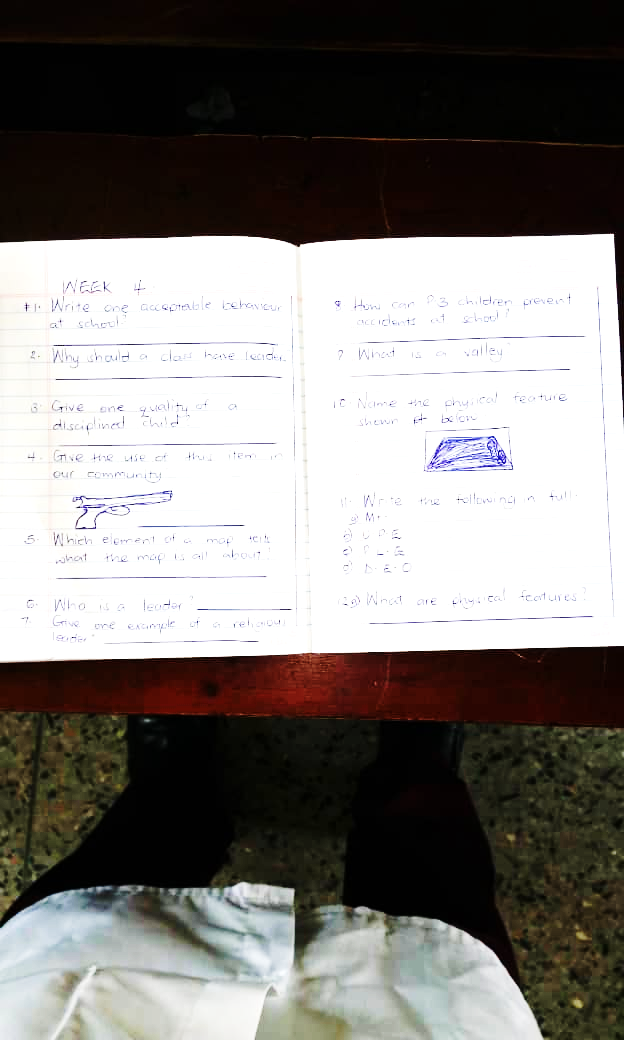 WEEK 4.
#1. Write one acceptable behaviour
at school?
2. Why should a class have leader.
3. Give one quality of a
disciplined child?
4. Give the use of this item in
our community
5. Which element of a map tells
what the map is all about?
6. Who is a leader?
7. Give one example of a religious
leader?
8. How can P3 children prevent
accidents at school?
9. What is a valley?
10. Name the physical feature
shown below
11. Write the following in full.
a) Mr.
b) U P E
c) P L E
d) D E O
12a) What are physical features?